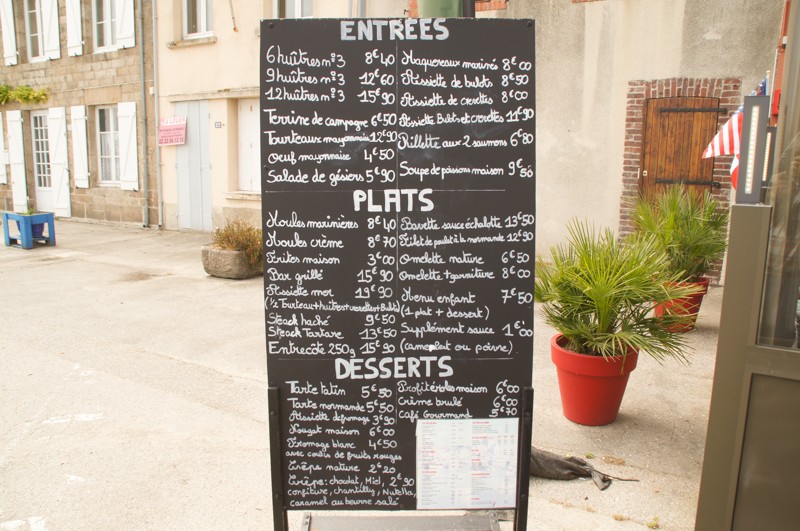 ENTRÉES
6 huîtres nº3 8€40
9 huîtres nº3 12€60
12 huîtres nº3 15€90
Terrine de campagne 6€50
Tourteaux mayonnaise 12€90
Oeuf mayonnaise 4€50
Salade de gésiers 5€90
Maquereaux marinés 8€00
Assiette de bulots 8€50
Assiette de crevettes 8€00
Assiette Bulots et crevettes 11€90
Rillette aux 2 saumons 6€80
Soupe de poissons maison 9€50
PLATS
Moules marinières 8€40
Moules crème 8€70
Frites maison 3€00
Bar grillé 15€90
Assiette mer 19€90
(½ Tourteau+huitres+crevettes+Bulot)
Steack haché 9€50
Steack Tartare 13€50
Entrecôte 250g 15€90
Bavette sauce échalotte 13€50
Filet de poulet à la normande 12€90
Omelette nature 6€50
Omelette + garniture 8€00
Menu enfant 7€50
(1 plat + dessert)
Supplément sauce 1€00
(camenbert ou poivre)
DESSERTS
Tarte tatin 5€50
Tarte normande 5€50
Assiette de fromage 3€90
Nougat maison 6€00
Fromage blanc 4€50
avec coulis de fruits rouges
Crêpe nature 2€20
Crêpe: chocolat, Miel, 2€90
confiture, chantilly, Nutella,
caramel au beurre salé
Profiteroles maison 6€00
Crème brulé 6€00
Café Gourmand 5€70